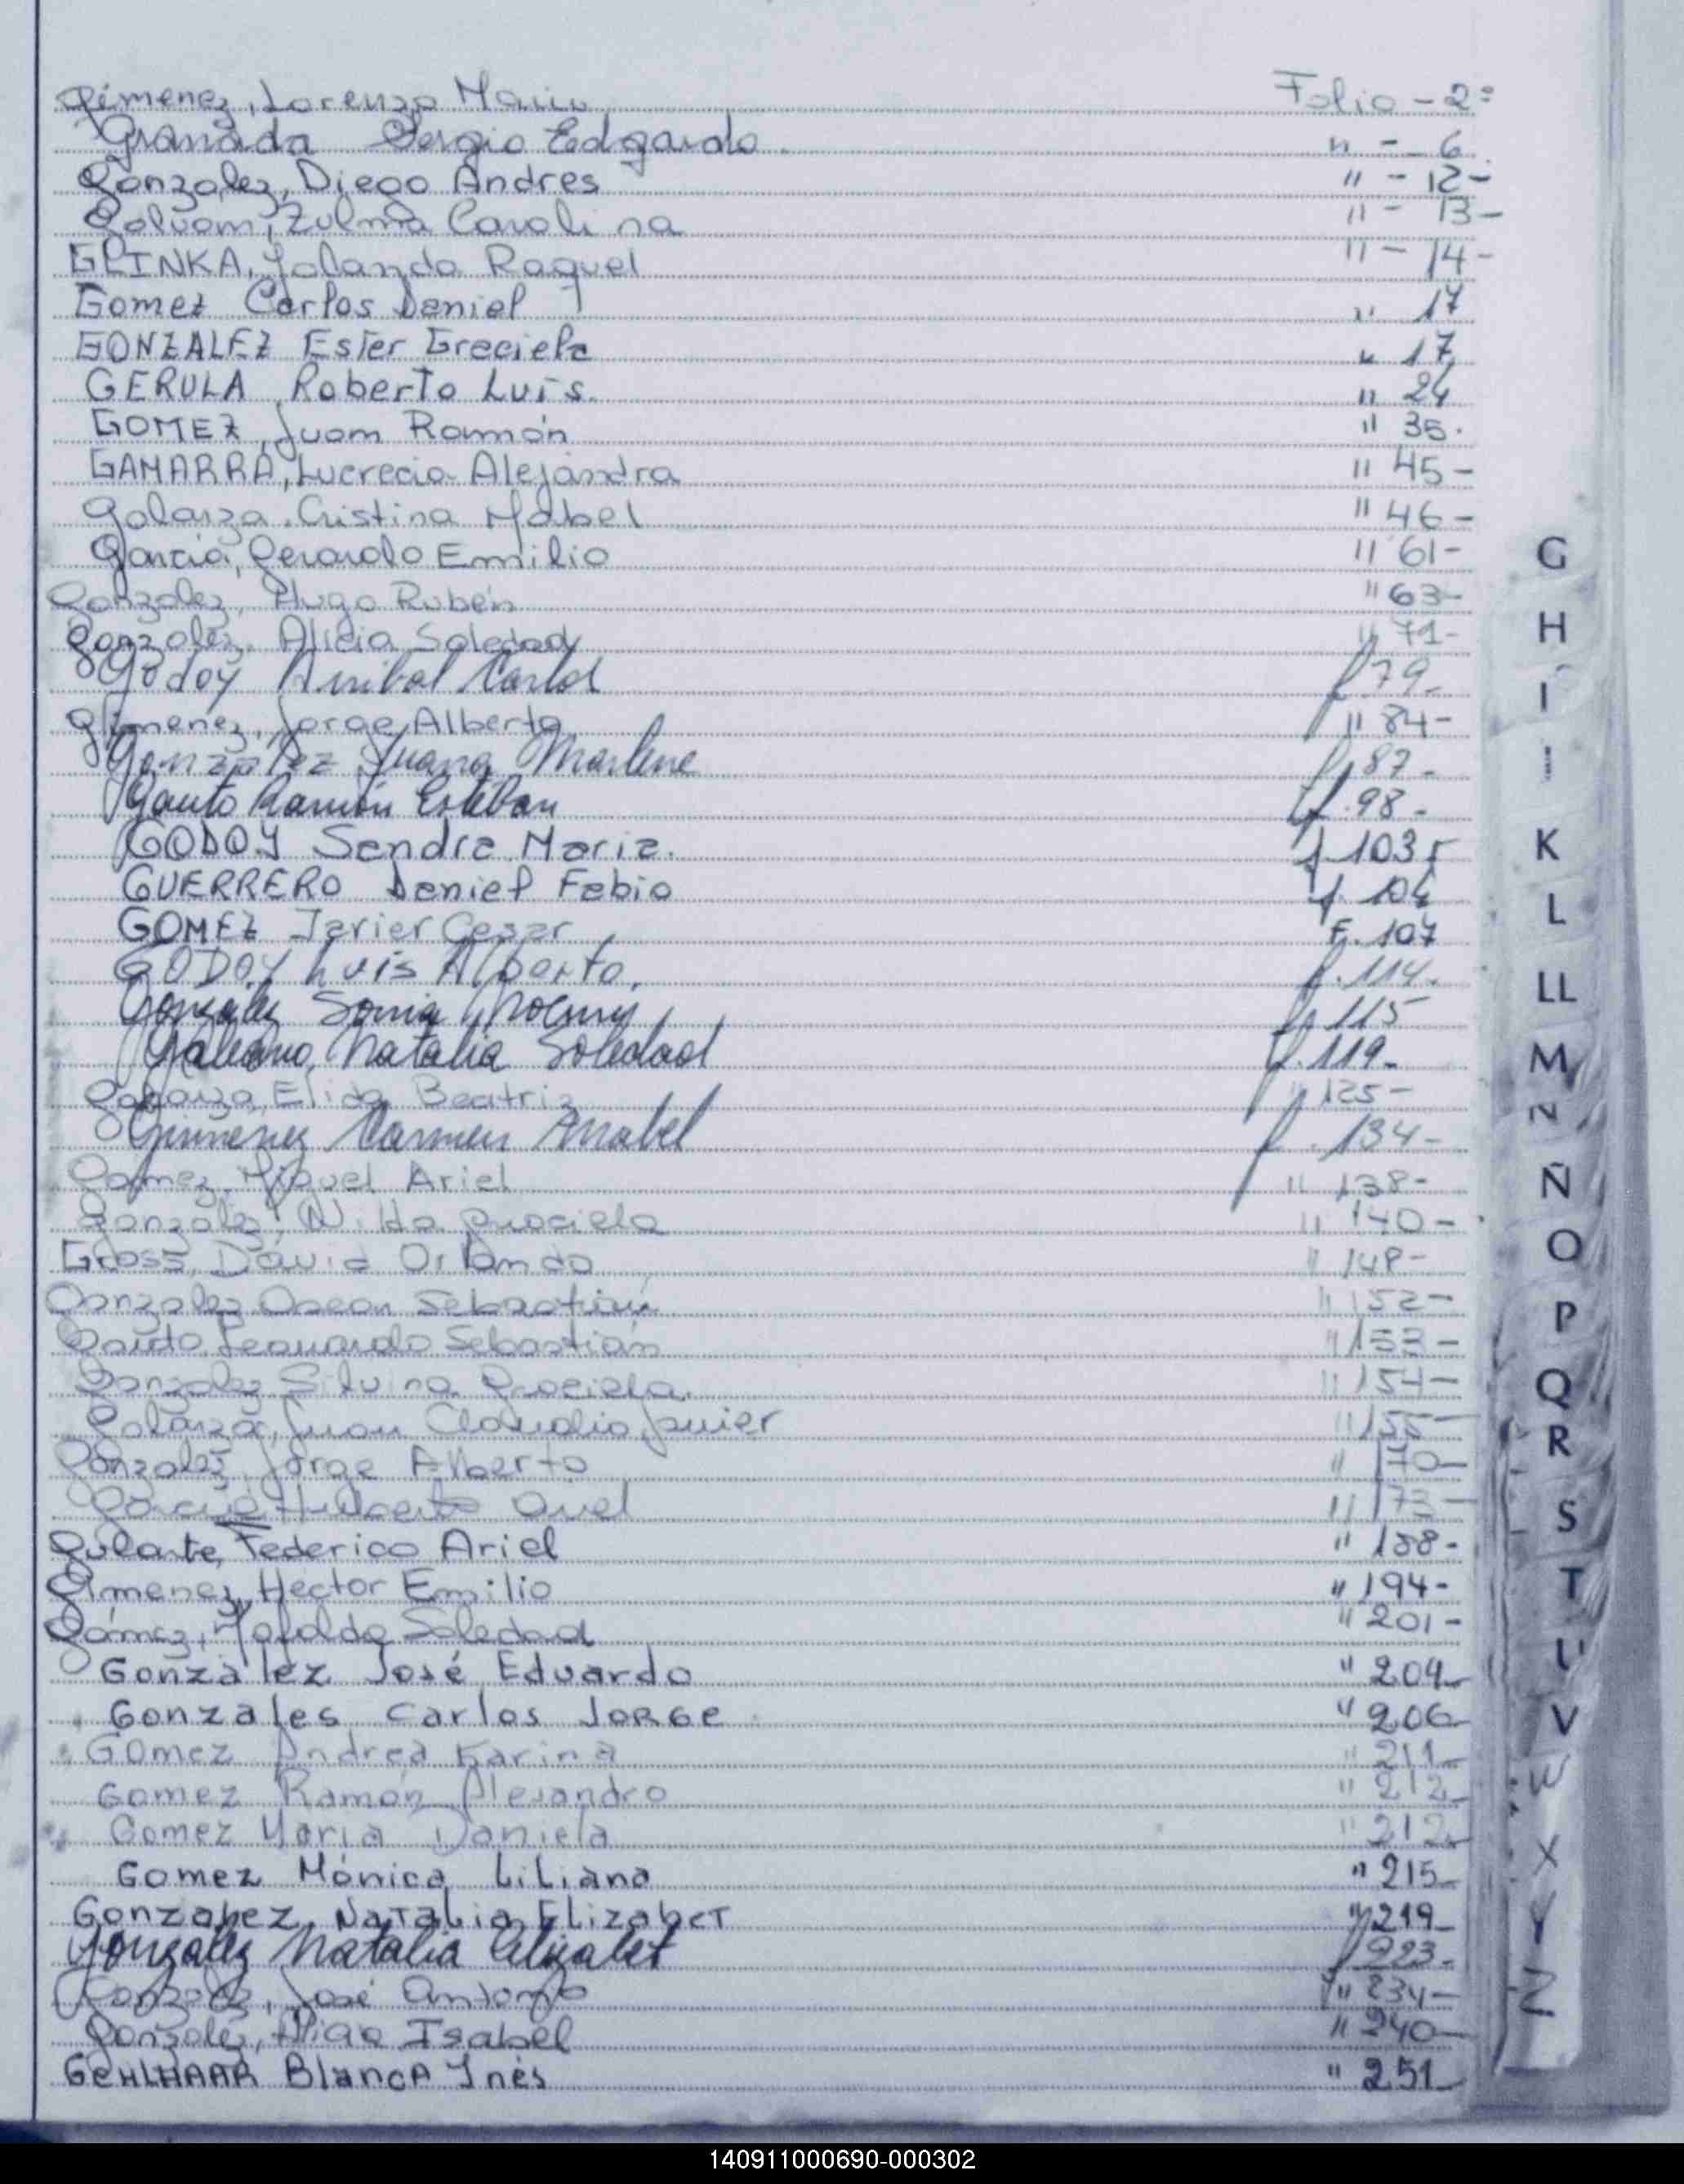 Gimenez, Lorenzo Mario Folio - 2=
Granada Sergio Edgardo. " - 6
Gonzalez, Diego Andres " - 12-
Galvan, Zulma Carolina " - 13-
GLINKA, Yolanda Raquel " - 14-
Gomez Carlos Daniel " 17
GONZALEZ Ester Graciela " 17
GERULA, Roberto Luis. " 24
GOMEZ, Juan Ramón " 35.
GAMARRA, Lucrecia Alejandra " 45-
Galarza, Cristina Mabel " 46-
García, Gerardo Emilio " 61-
Gonzalez, Hugo Rubén " 63-
Gonzalez, Alicia Soledad " 71-
Godoy Anibal Carlos f 79-
Gimenez, Jorge Alberto " 84-
Gonzalez Juana Marlene f 87-
Gauto Ramón Esteban f. 98-
GODOY Sandra Maria. f. 103
GUERRERO Daniel Fabio f. 104
GOMEZ Javier Cesar F. 107
GODOY Luis Alberto. f. 114.
Gonzalez Sonia Noemy f. 115
Galeano, Natalia Soledad f. 119-
Galarza, Elida Beatriz " 125-
Gimenez Carmen Anabel f. 134-
Gomez, Miguel Ariel " 138-
Gonzalez, Nilda Graciela " 140-
Gross, David Orlando " 148-
Gonzalez Oscar Sebastian " 152-
Gauto, Leonardo Sebastián " 153-
Gonzalez Silvina Graciela. " 154-
Galarza, Juan Claudio Javier " 155-
Gonzalez, Jorge Alberto " 170-
Ariel " 173-
Gularte, Federico Ariel " 188-
Gimenez, Hector Emilio " 194-
Gómez, Mafalda Soledad " 201-
Gonzàlez José Eduardo " 204-
Gonzales Carlos Jorge " 206-
Gomez Andrea Karina " 211-
Gomez Ramón Alejandro " 212-
Gomez Maria Daniela " 212-
Gomez Mónica Liliana " 215-
Gonzalez, Natalia Elizabet " 219-
Gonzalez Natalia Elizabet f 223-
Gonzalez, José Antonio " 234-
Gonzalez, Isabel " 240-
GEHLHAAR Blanca Inés " 251-
G
H
I
J
K
L
LL
M
N
Ñ
O
P
Q
R
S
T
U
V
W
X
Y
Z
140911000690-000302